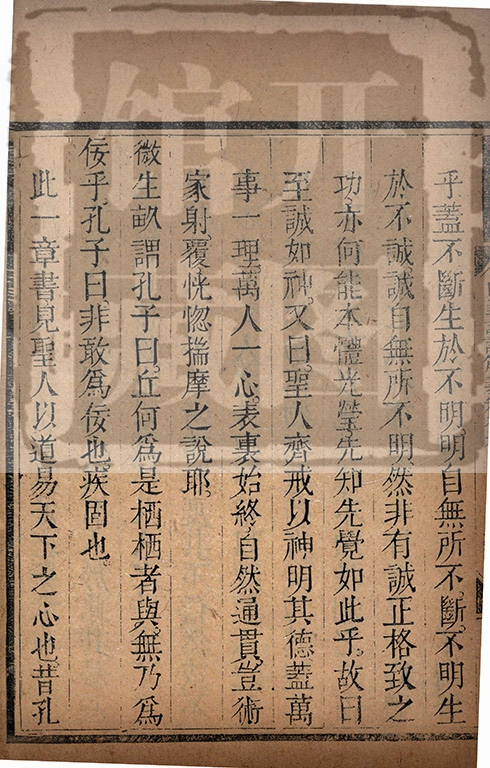 乎蓋不斷生於不明。明自無所不斷。不明生
於不誠。誠自無所不明。然非有誠正格致之
功。亦何能本體光瑩。先知先覺如此乎。故曰
至誠如神。又曰。聖人齊戒以神明其德。蓋萬
事一理。萬人一心。表裏始終。自然通貫。豈術
家射覆恍惚揣摩之說耶。
微生畝謂孔子曰。丘何為是栖栖者與。無乃為
佞乎。孔子曰。非敢為佞也。疾固也。
此一章書見聖人以道易天下之心也。昔孔